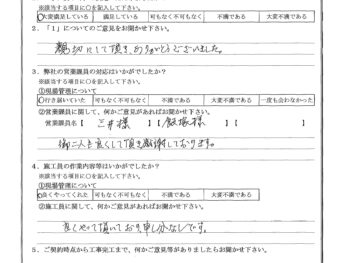 ※該当する項目に○を記入して下さい。
○大変満足している 満足している 可もなく不可もなく 不満である 大変不満である
2．「1」についてのご意見をお聞かせ下さい。
親切にして頂き、ありがとうございました。
3．弊社の営業職員の対応はいかがでしたか？
※該当する項目に○を記入して下さい。
①現場管理について
○行き届いていた 可もなく不可もなく 不満である 大変不満である 一度も会わなかった
②営業職員に関して、何かご意見があればお聞かせ下さい。
営業職員名【 三井様 】【 飯塚様 】【 】
御二人とも良くして頂き感謝しております。
4．施工員の作業内容等はいかがでしたか？
※該当する項目に○を記入して下さい。
①現場管理について
○良くやってくれた 可もなく不可もなく 不満である 大変不満である
②施工員に関して、何かご意見があればお聞かせ下さい。
良くやって頂いており申し分なしです。
5．ご契約時点から工事完工まで、何かご意見等がありましたらお聞かせ下さい。